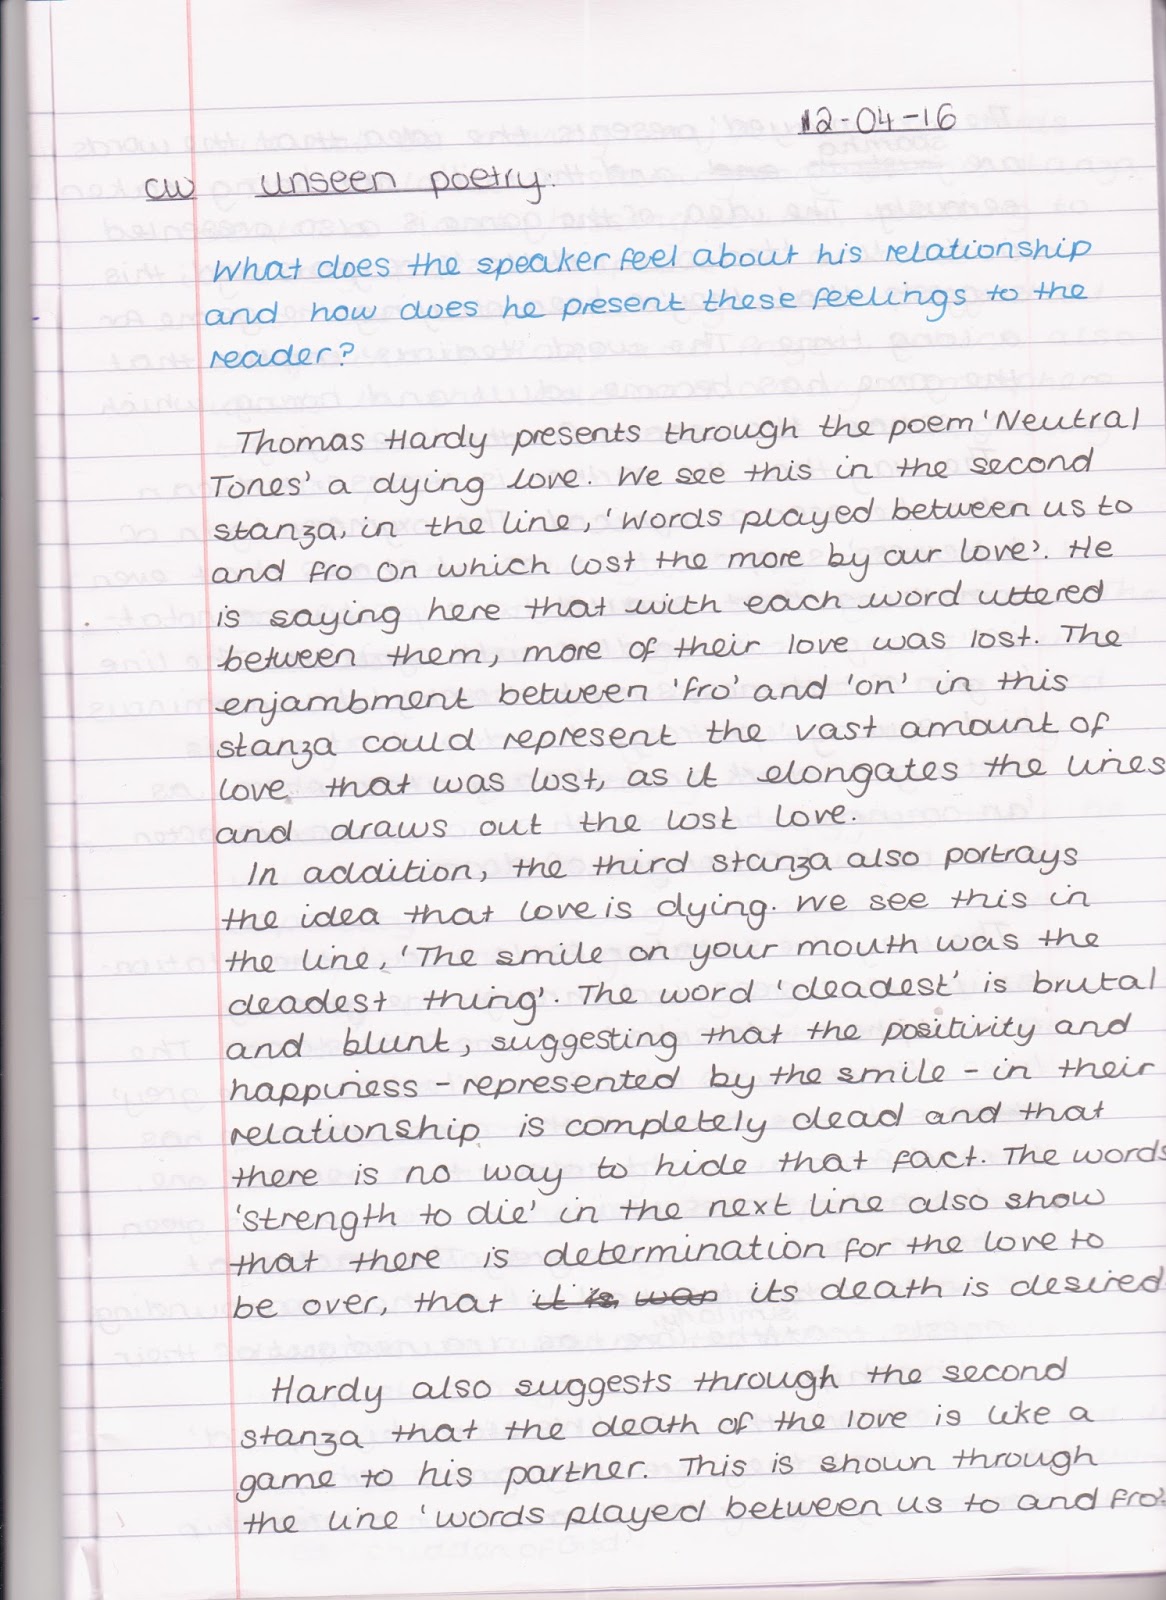 12-04-16
CW unseen poetry.
What does the speaker feel about his relationship
and how does he present these feelings to the
reader?
Thomas Hardy presents through the poem 'Neutral
Tones' a dying love. We see this in the second
stanza, in the line, 'Words played between us to
and fro On which lost the more by our love'. He
is saying here that with each word uttered
between them, more of their love was lost. The
enjambment between 'fro' and 'on' in this
stanza could represent the vast amount of
love that was lost, as it elongates the lines
and draws out the lost love.
In addition, the third stanza also portrays
the idea that love is dying. We see this in
the line, 'The smile on your mouth was the
deadest thing'. The word 'deadest' is brutal
and blunt, suggesting that the positivity and
happiness - represented by the smile - in their
relationship is completely dead and that
there is no way to hide that fact. The words
'strength to die' in the next line also show
that there is determination for the love to
be over, that it is was its death is desired
Hardy also suggests through the second
stanza that the death of the love is like a
game to his partner. This is shown through
the line 'words played between us to and fro'.